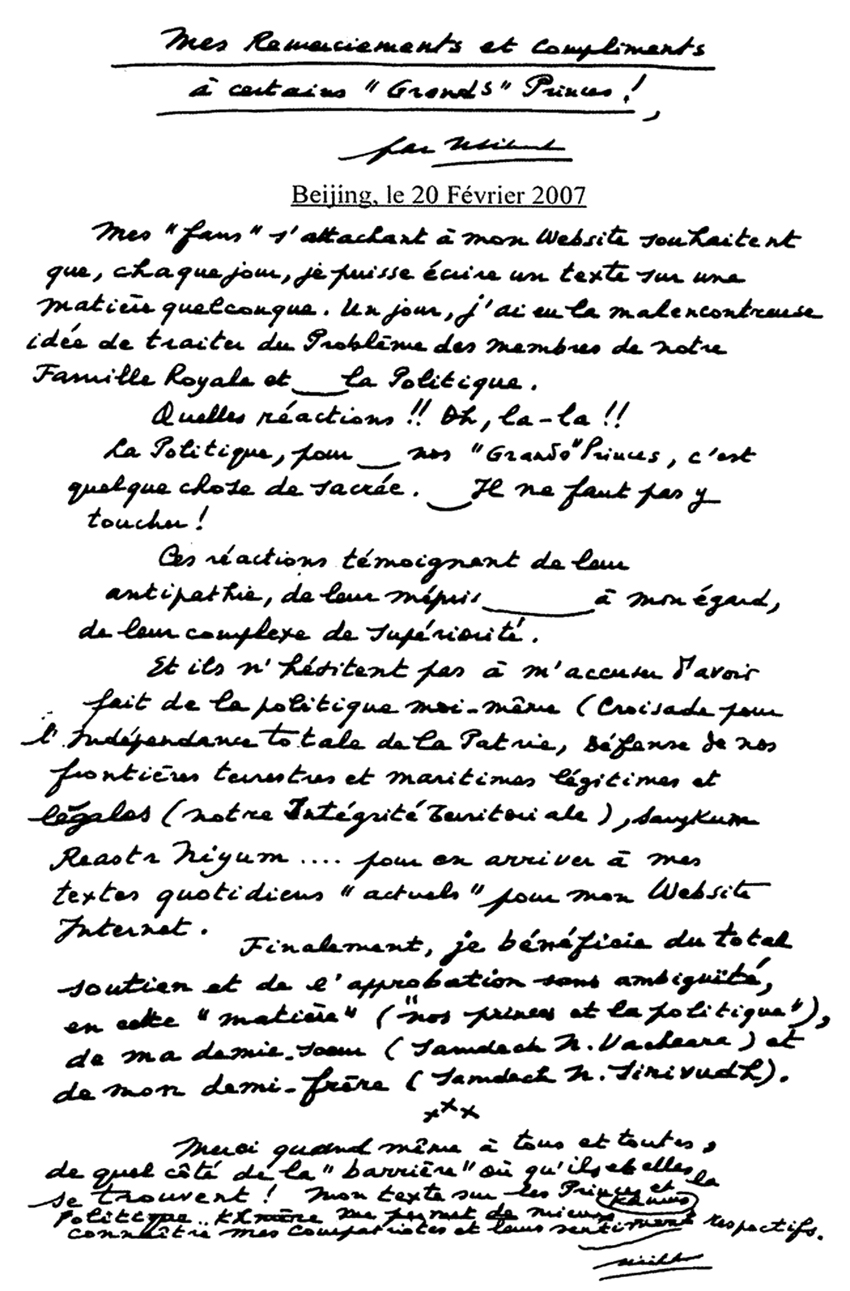 Mes Remerciements et Compliments
à certains "Grands" Princes !,
par
Beijing, le 20 Février 2007
Mes "fans" s'attachant à mon Website souhaitent
que, chaque jour, je puisse écrire un texte sur une
matière quelconque. Un jour, j'ai eu la malencontreuse
idée de traiter du Problème des membres de notre
Famille Royale et la Politique.
Quelles réactions !! Oh, la-la !!
La Politique, pour nos "Grands" Princes, c'est
quelque chose de sacrée. Il ne faut pas y
toucher !
Ces réactions témoignent de leur
antipathie, de leur mépris à mon égard,
de leur complexe de supériorité.
Et ils n'hésitent pas à m'accuser d'avoir
fait de la politique moi-même (Croisade pour
l'Indépendance totale de la Patrie, Défense de nos
frontières terrestres et maritimes légitimes et
légales (notre Intégrité Territoriale), Sangkum
Reastr Niyum .... pour en arriver à mes
textes quotidiens "actuels" pour mon Website
Internet.
Finalement, je bénéficie du total
soutien et de l'approbation sans ambiguïté,
en cette "matière" ("nos princes et la politique"),
de ma demie-soeur (Samdech N. Vacheara) et
de mon demi-frère (Samdech N. Sirivudh).
xxx
Merci quand même à tous et toutes,
de quel côté de la "barrière" où qu'ils et elles
se trouvent ! Mon texte sur les Princes et la
Politique khmère me permet de mieux
connaître mes compatriotes khmers et leurs sentiment respectifs.